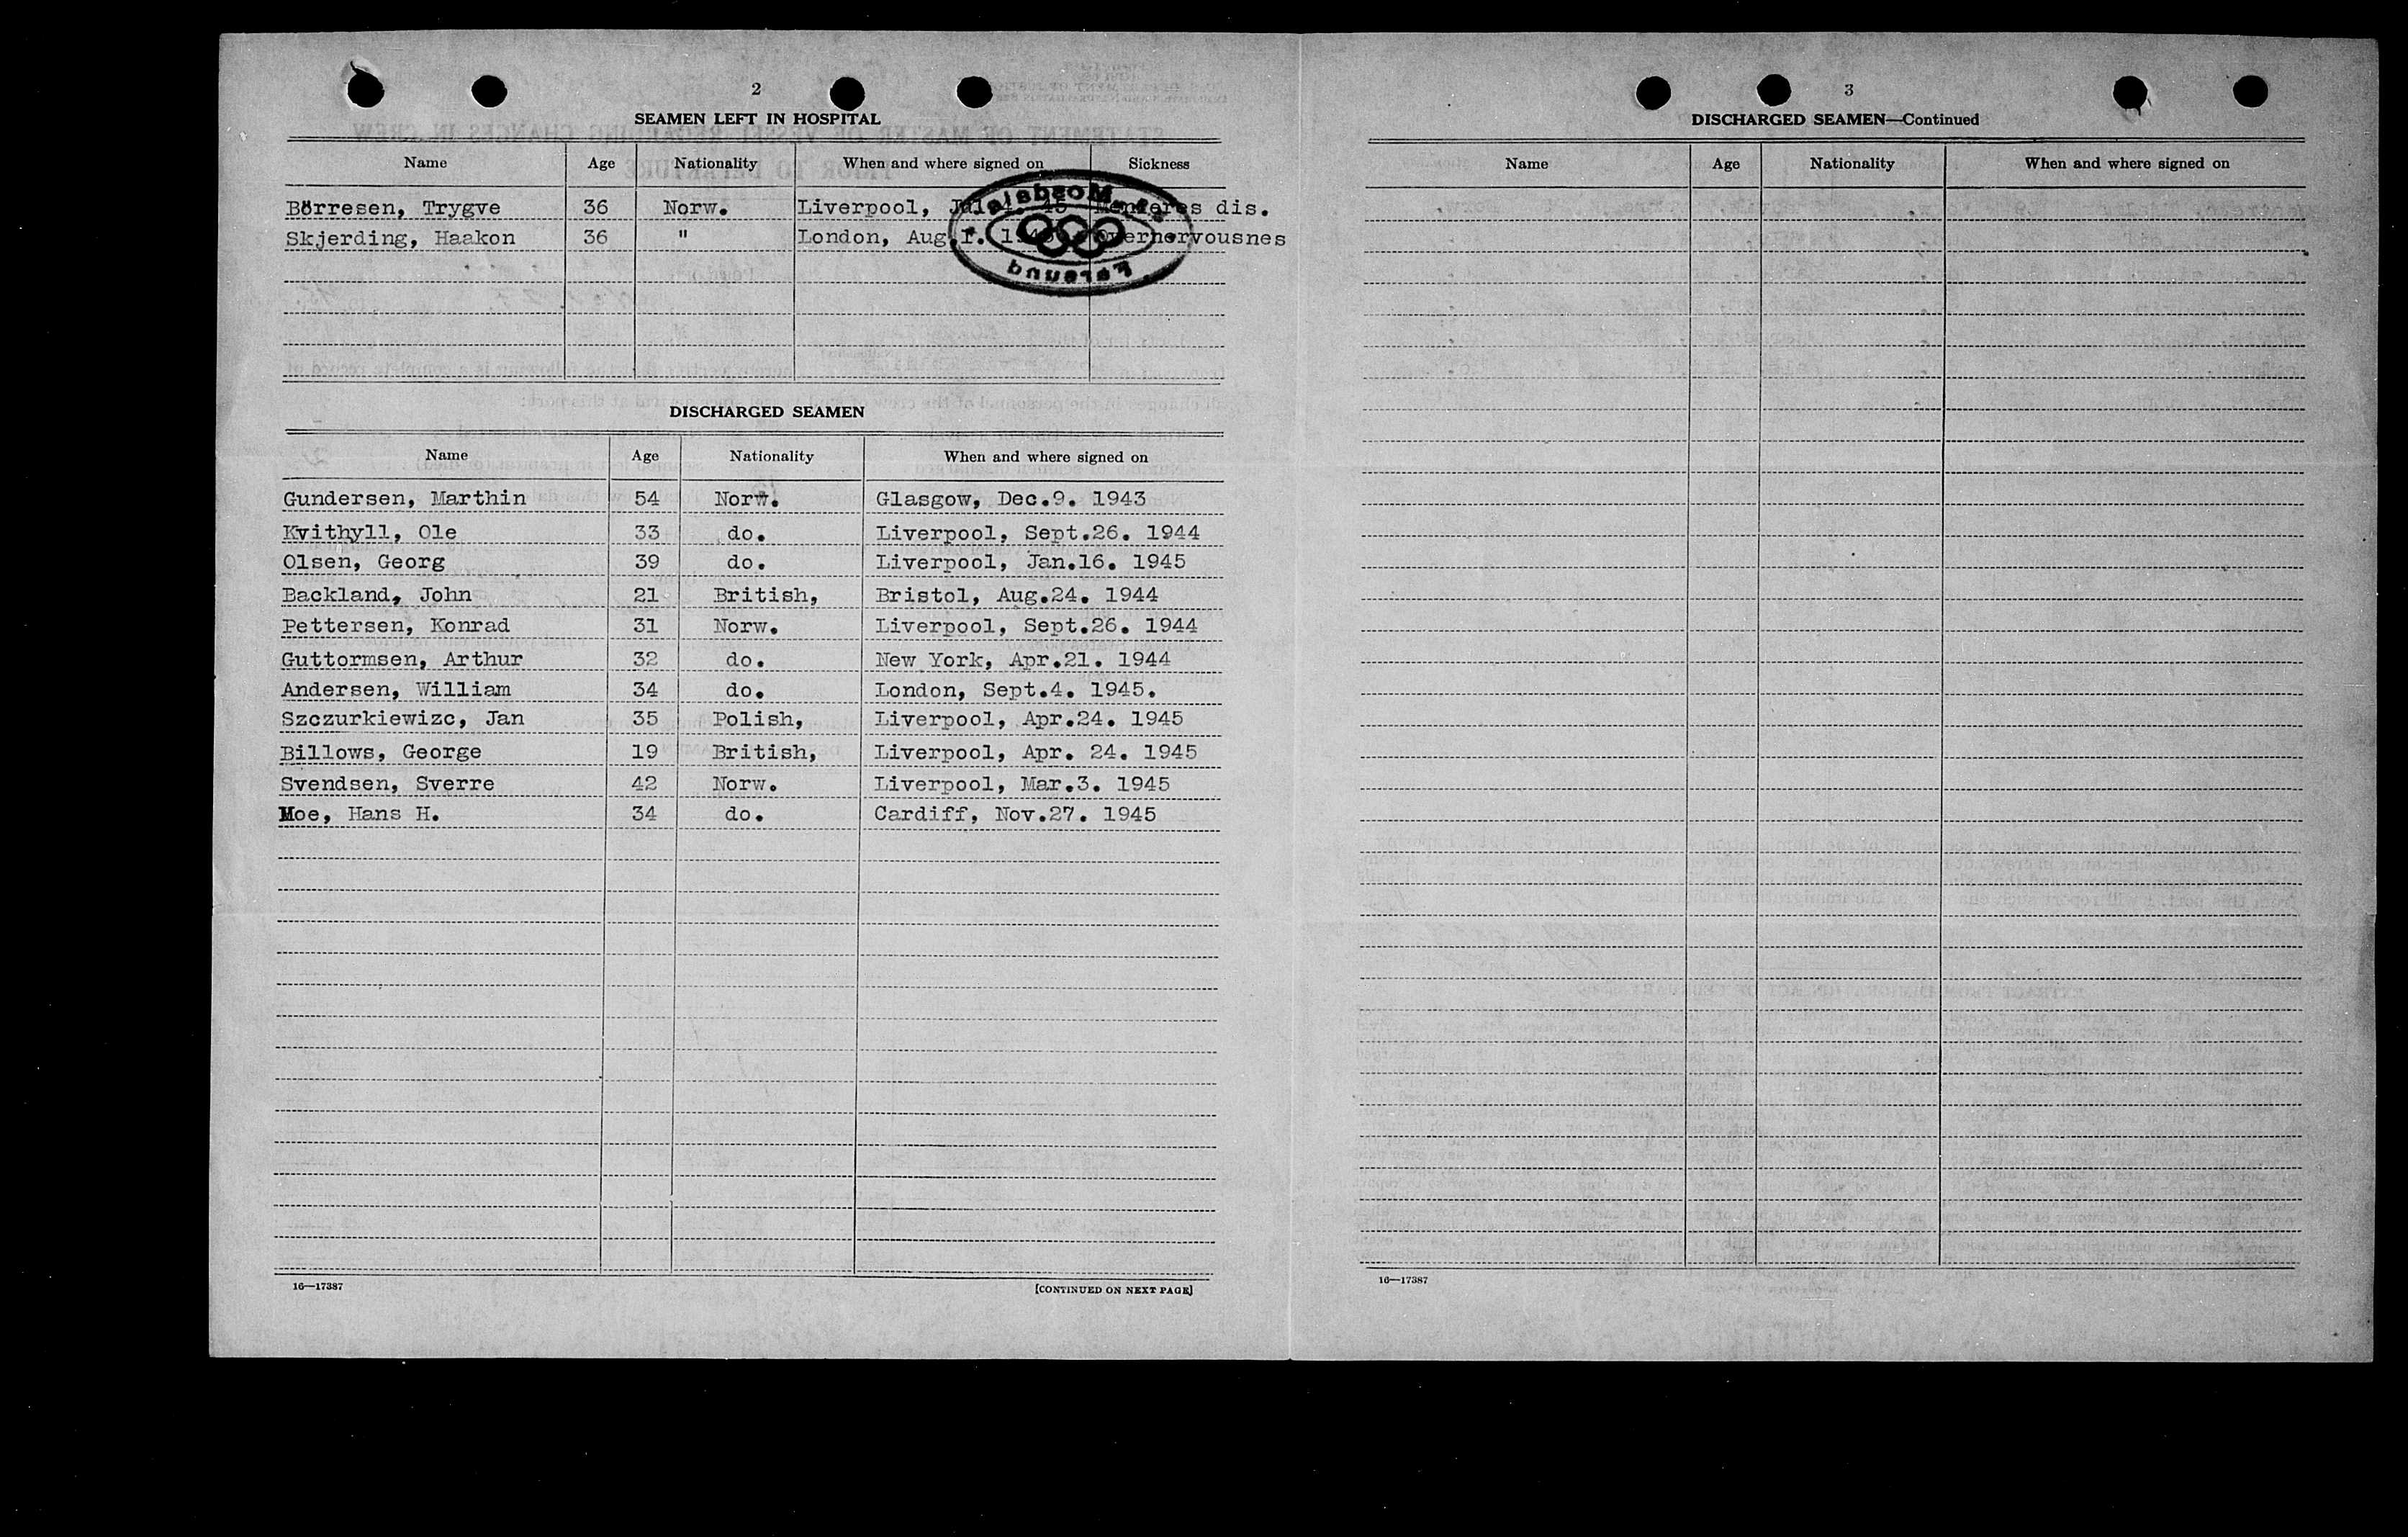 2
SEAMEN LEFT IN HOSPITAL
Name Age Nationality When and where signed on Sickness
Börresen, Trygve 36 Norw. Liverpool, 45 Menieres dis.
Skjerding, Haakon 36 " London, Aug.1. 1945 Overnervousnes
Mosdale
Farsund
DISCHARGED SEAMEN
Name Age Nationality When and where signed on
Gundersen, Marthin 54 Norw. Glasgow, Dec.9. 1943
Kvithyll, Ole 33 do. Liverpool, Sept.26. 1944
Olsen, Georg 39 do. Liverpool, Jan.16. 1945
Backland, John 21 British, Bristol, Aug.24. 1944
Pettersen, Konrad 31 Norw. Liverpool, Sept.26. 1944
Guttormsen, Arthur 32 do. New York, Apr.21. 1944
Andersen, William 34 do. London, Sept.4. 1945.
Szczurkiewizc, Jan 35 Polish, Liverpool, Apr.24. 1945
Billows, George 19 British, Liverpool, Apr. 24. 1945
Svendsen, Sverre 42 Norw. Liverpool, Mar.3. 1945
Moe, Hans H. 34 do. Cardiff, Nov.27. 1945
16—17387 [CONTINUED ON NEXT PAGE]
3
DISCHARGED SEAMEN—Continued
Name Age Nationality When and where signed on
16—17387